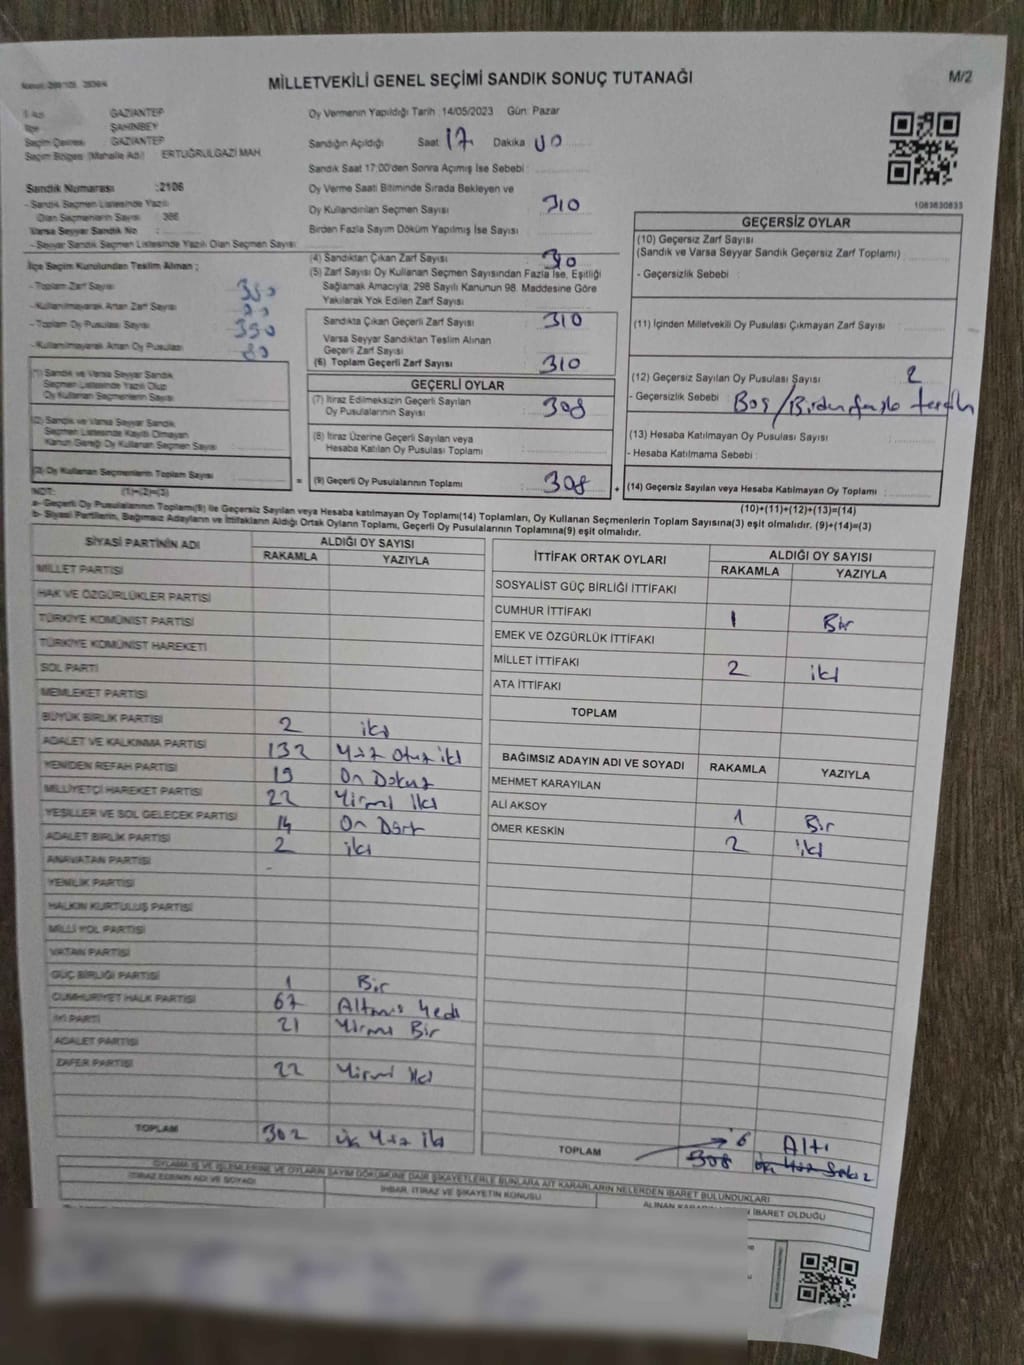 MİLLETVEKİLİ GENEL SEÇİMİ SANDIK SONUÇ TUTANAĞI
M/2
İl Adı GAZİANTEP
İlçe ŞAHİNBEY
Seçim Çevresi GAZİANTEP
Seçim Bölgesi (Mahalle Adı) ERTUĞRULGAZİ MAH.
Sandık Numarası :2106
- Sandık Seçmen Listesinde Yazılı
Olan Seçmenlerin Sayısı : 366
Varsa Seyyar Sandık No :
- Seyyar Sandık Seçmen Listesinde Yazılı Olan Seçmen Sayısı :
İlçe Seçim Kurulundan Teslim Alınan :
- Toplam Zarf Sayısı
- Kullanılmayarak Artan Zarf Sayısı
- Toplam Oy Pusulası Sayısı
- Kullanılmayarak Artan Oy Pusulası 80
(1) Sandık ve Varsa Seyyar Sandık
Seçmen Listesinde Yazılı Olup
Oy Kullanan Seçmenlerin Sayısı
(2) Sandık ve Varsa Seyyar Sandık
Seçmen Listesinde Kayıtlı Olmayan
Kanun Gereği Oy Kullanan Seçmen Sayısı
(3) Oy Kullanan Seçmenlerin Toplam Sayısı
Oy Vermenin Yapıldığı Tarih :14/05/2023 Gün: Pazar
Sandığın Açıldığı Saat 17 Dakika 00
Sandık Saat 17:00'den Sonra Açımış İse Sebebi :
Oy Verme Saati Bitiminde Sırada Bekleyen ve
Oy Kullandırılan Seçmen Sayısı 310
Birden Fazla Sayım Döküm Yapılmış İse Sayısı
(4) Sandıktan Çıkan Zarf Sayısı 310
(5) Zarf Sayısı Oy Kullanan Seçmen Sayısından Fazla İse, Eşitliği
Sağlamak Amacıyla; 298 Sayılı Kanunun 98. Maddesine Göre
Yakılarak Yok Edilen Zarf Sayısı
Sandıkta Çıkan Geçerli Zarf Sayısı 310
Varsa Seyyar Sandıktan Teslim Alınan
Geçerli Zarf Sayısı
(6) Toplam Geçerli Zarf Sayısı 310
GEÇERLİ OYLAR
(7) İtiraz Edilmeksizin Geçerli Sayılan
Oy Pusulalarının Sayısı 308
(8) İtiraz Üzerine Geçerli Sayılan veya
Hesaba Katılan Oy Pusulası Toplamı
= (9) Geçerli Oy Pusulalarının Toplamı 308 +
1083630833
GEÇERSİZ OYLAR
(10) Geçersiz Zarf Sayısı
(Sandık ve Varsa Seyyar Sandık Geçersiz Zarf Toplamı)
- Geçersizlik Sebebi :
(11) İçinden Milletvekili Oy Pusulası Çıkmayan Zarf Sayısı
(12) Geçersiz Sayılan Oy Pusulası Sayısı 2
- Geçersizlik Sebebi Boş/Birden fazla tercih
(13) Hesaba Katılmayan Oy Pusulası Sayısı
- Hesaba Katılmama Sebebi :
(14) Geçersiz Sayılan veya Hesaba Katılmayan Oy Toplamı :
NOT: (1)+(2)=(3)
(10)+(11)+(12)+(13)=(14)
a- Geçerli Oy Pusulalarının Toplamı(9) ile Geçersiz Sayılan veya Hesaba katılmayan Oy Toplamı(14) Toplamları, Oy Kullanan Seçmenlerin Toplam Sayısına(3) eşit olmalıdır. (9)+(14)=(3)
b- Siyasi Partilerin, Bağımsız Adayların ve İttifakların Aldığı Ortak Oyların Toplamı, Geçerli Oy Pusulalarının Toplamına(9) eşit olmalıdır.
SİYASİ PARTİNİN ADI ALDIĞI OY SAYISI
RAKAMLA YAZIYLA
MİLLET PARTİSİ
HAK VE ÖZGÜRLÜKLER PARTİSİ
TÜRKİYE KOMÜNİST PARTİSİ
TÜRKİYE KOMÜNİST HAREKETİ
SOL PARTİ
MEMLEKET PARTİSİ
BÜYÜK BİRLİK PARTİSİ 2 iki
ADALET VE KALKINMA PARTİSİ 132 Yüz Otuz iki
YENİDEN REFAH PARTİSİ 19 On Dokuz
MİLLİYETÇİ HAREKET PARTİSİ 22 Yirmi İki
YEŞİLLER VE SOL GELECEK PARTİSİ 14 On Dört
ADALET BİRLİK PARTİSİ 2 iki
ANAVATAN PARTİSİ -
YENİLİK PARTİSİ
HALKIN KURTULUŞ PARTİSİ
MİLLİ YOL PARTİSİ
VATAN PARTİSİ
GÜÇ BİRLİĞİ PARTİSİ 1 Bir
CUMHURİYET HALK PARTİSİ 67 Altmış Yedi
İYİ PARTİ 21 Yirmi Bir
ADALET PARTİSİ
ZAFER PARTİSİ 22 Yirmi İki
TOPLAM 302 üç Yüz İki
İTTİFAK ORTAK OYLARI ALDIĞI OY SAYISI
RAKAMLA YAZIYLA
SOSYALİST GÜÇ BİRLİĞİ İTTİFAKI
CUMHUR İTTİFAKI 1 Bir
EMEK VE ÖZGÜRLÜK İTTİFAKI
MİLLET İTTİFAKI 2 iki
ATA İTTİFAKI
TOPLAM
BAĞIMSIZ ADAYIN ADI VE SOYADI RAKAMLA YAZIYLA
MEHMET KARAYILAN
ALİ AKSOY 1 Bir
ÖMER KESKİN 2 iki
TOPLAM 6 Altı
308 üç Yüz Sekiz
OYLAMA İŞ VE İŞLEMLERİNE VE OYLARIN SAYIM DÖKÜMÜNE DAİR ŞİKAYETLERLE BUNLARA AİT KARARLARIN NELERDEN İBARET BULUNDUKLARI
İTİRAZ EDENİN ADI VE SOYADI İHBAR, İTİRAZ VE ŞİKAYETİN KONUSU İBARET OLDUĞU